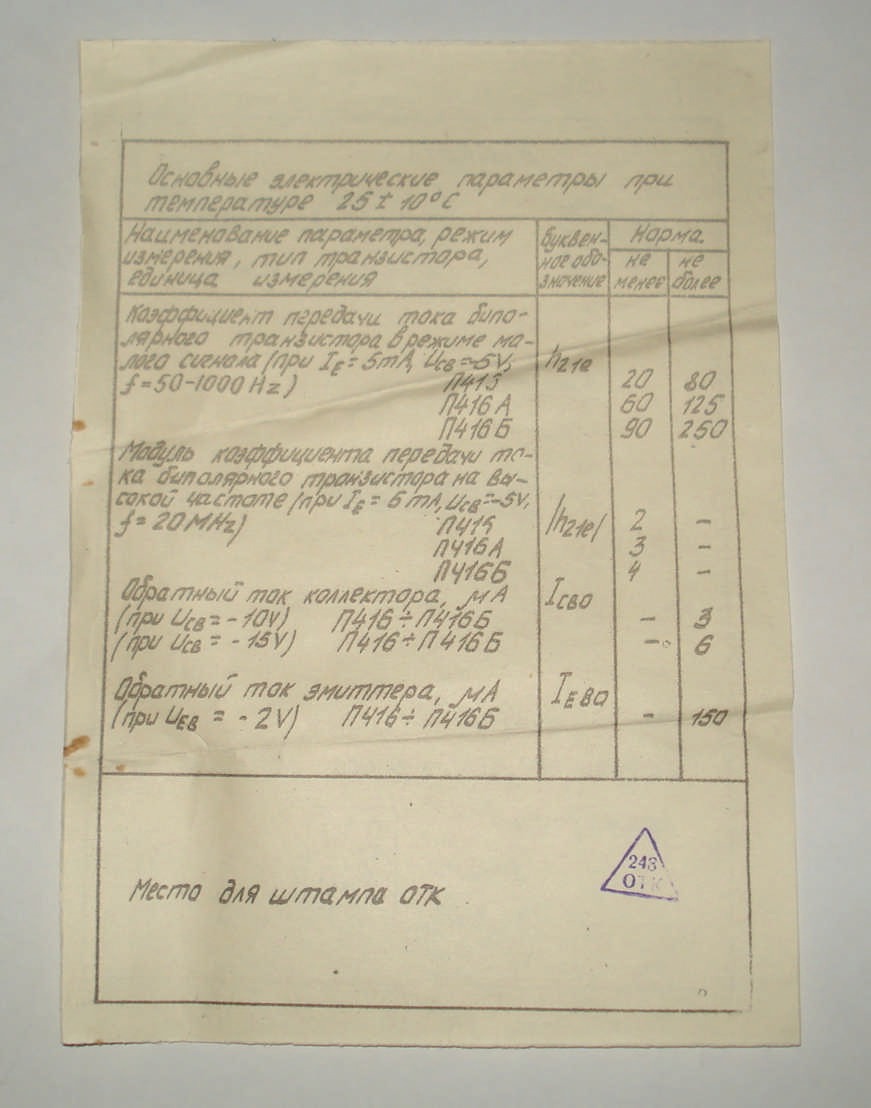 Основные электрические параметры при
температуре 25 ± 10°С
Наименование параметра, режим
измерения, тип транзистора,
единица измерения
Буквен-
ное обо-
значение
Норма.
не
менее
не
более
Коэффициент передачи тока бипо-
лярного транзистора в режиме ма-
лого сигнала (при IE = 5mA, UCB = -5V, h21e
f = 50-1000 Hz) П415 20 80
П416 А 60 125
П416 Б 90 250
Модуль коэффициента передачи то-
ка биполярного транзистора на вы-
сокой частоте (при IE = 5 mA, UCB = -5V,
f = 20 MHz) П415 |h21e| 2 -
П416 А 3 -
П416Б 4 -
Обратный ток коллектора, мА IСВО
(при UCB = - 10V) П416 ÷ П416Б - 3
(при UCB = - 15V) П416 ÷ П416 Б - 6
Обратный ток эмиттера, мА IЕВО
(при UЕВ = - 2V) П416 ÷ П416Б - 150
Место для штампа ОТК
243
ОТК